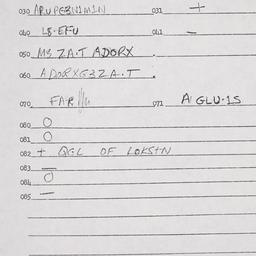 030 031 +
040 LB-EFU 041 -
050 MS ZA.T ADORX
060 ADORXG3ZA.T.
070 FAR 071 A GLU-1S
080 O
081 O
082 + QGL OF LOKSTN
083 —
084 O
085 —